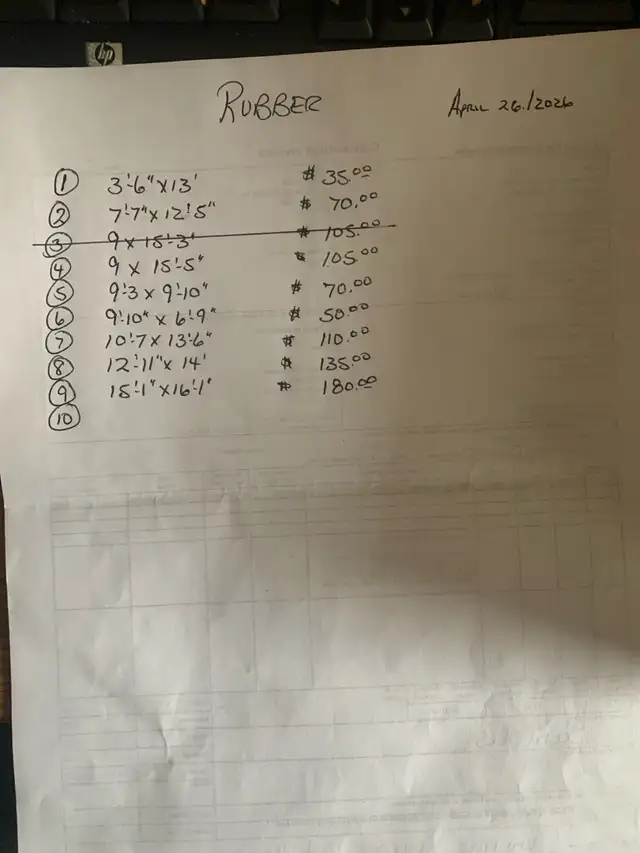 hp
RUBBER
APRIL 26/2026
① 3'-6" x 13' $ 35.00
② 7'-7" x 12'-5" $ 70.00
③ 9 x 15'-3" $ 105.00
④ 9 x 15'-5" $ 105.00
⑤ 9'-3 x 9'-10" $ 70.00
⑥ 9'-10" x 6'-9" $ 50.00
⑦ 10'-7 x 13'-6" $ 110.00
⑧ 12'-11" x 14' $ 135.00
⑨ 15'-1" x 16'-1" $ 180.00
⑩